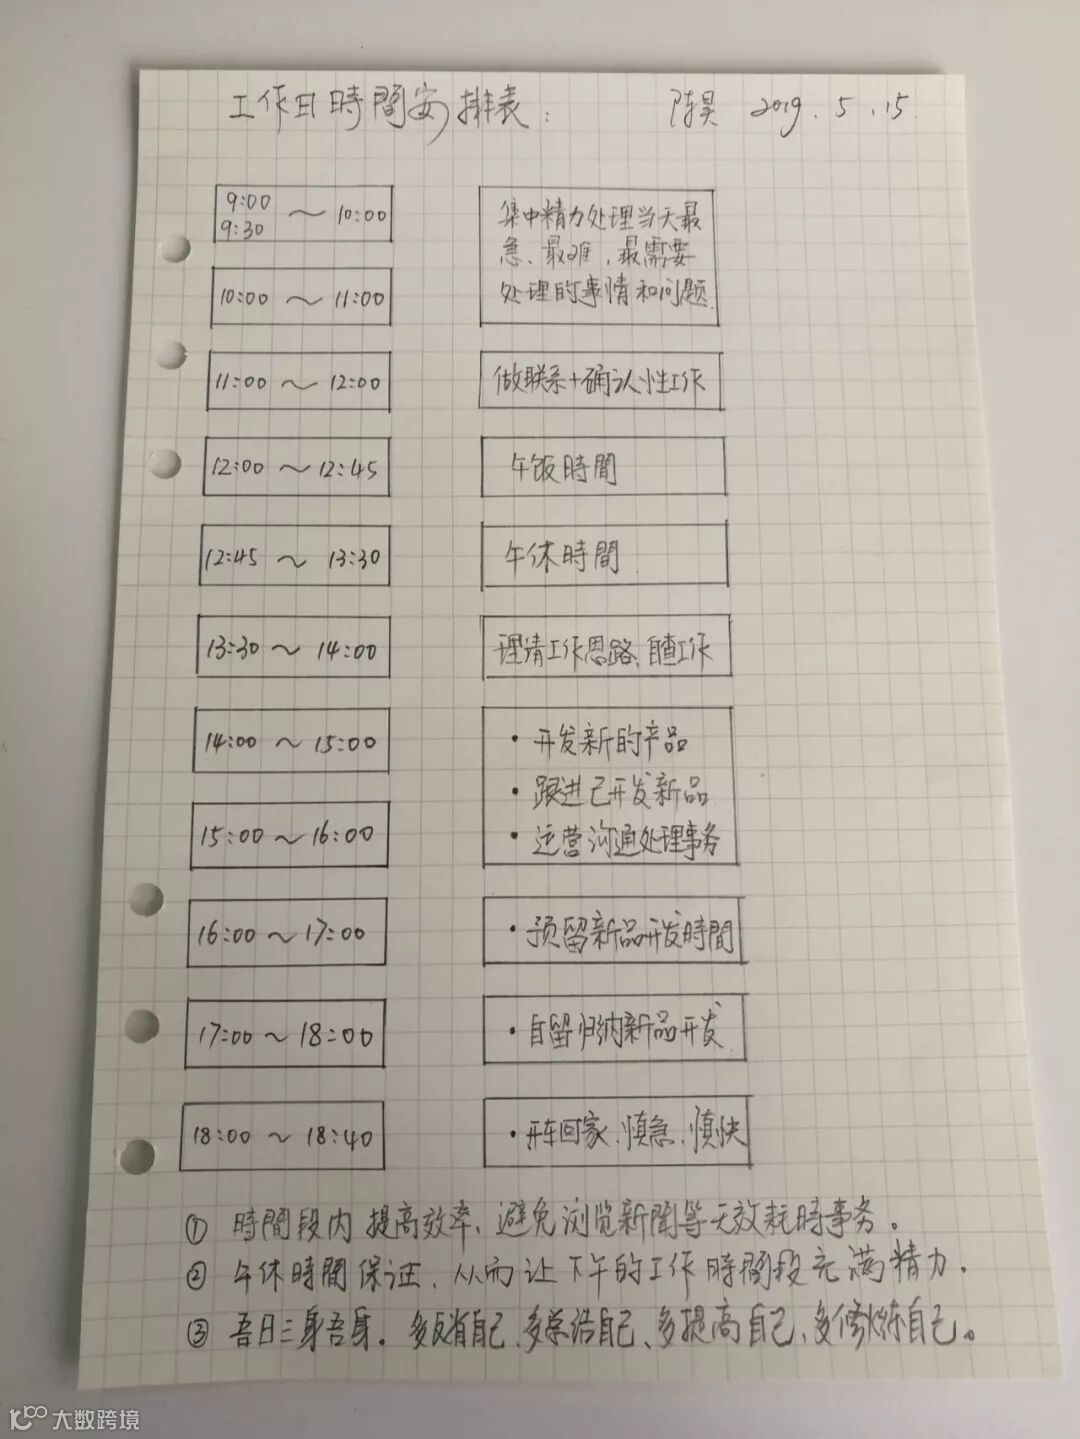 工作日時間安排表: 陈昊 2019.5.15
9:00
9:30 ～ 10:00
集中精力处理当天最
急、最难,最需要
处理的事情和问题.
10:00 ～ 11:00
11:00 ～ 12:00
做联系+确认性工作
12:00 ～ 12:45
午饭時間
12:45 ～ 13:30
午休時間
13:30 ～ 14:00
理请工作思路、自查工作
14:00 ～ 15:00
·开发新的产品
·跟进已开发新品
·运营沟通处理事务
15:00 ～ 16:00
16:00 ～ 17:00
·预留新品开发時間
17:00 ～ 18:00
·自留归纳新品开发
18:00 ～ 18:40
·开车回家、慎急、慎快
① 時間段内提高效率、避免浏览新聞等无效耗時事务.
② 午休時間保证、从而让下午的工作時間段充满精力.
③ 吾日三身吾身. 多反省自己、多总结自己、多提高自己、多修炼自己。
大数跨境